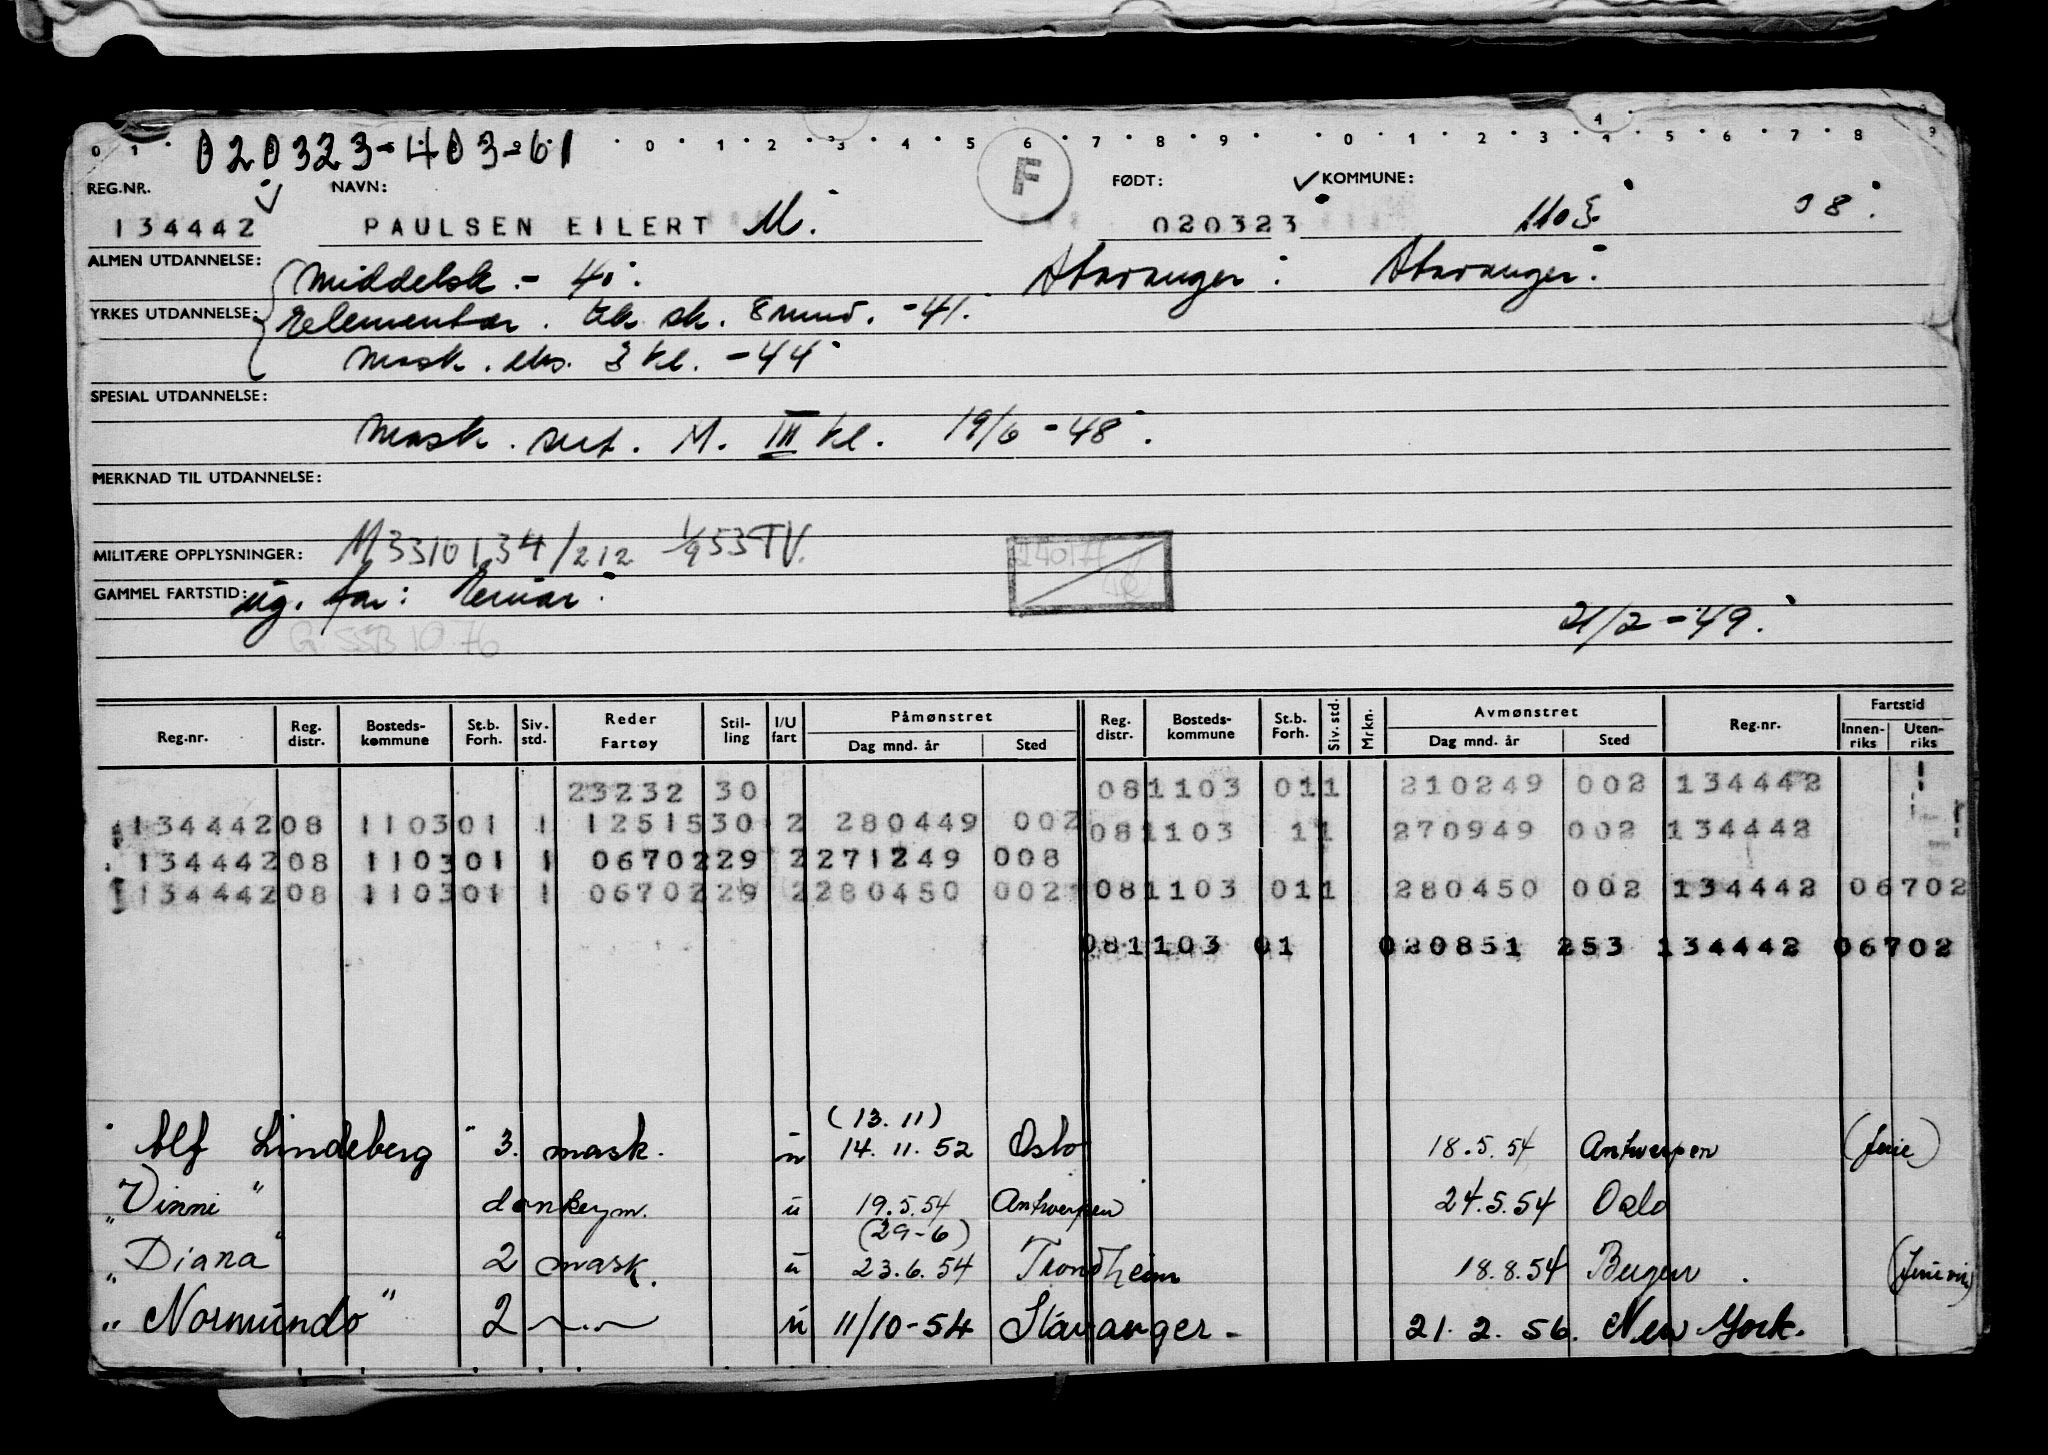 0 1 020323-403-61 0 1 2 3 4 5 6 7 8 9 0 1 2 3 4 5 6 7 8 9
REG.NR. NAVN: F FØDT: KOMMUNE:
134442 PAULSEN EILERT M. 020323 1103 08
ALMEN UTDANNELSE: Middelsk. - 40. Stavanger. Stavanger.
YRKES UTDANNELSE: Elementær. tek sk. 8 mnd. -41.
Mask. eks. 3 kl. -44
SPESIAL UTDANNELSE:
Mask. sert. M. III kl. 19/6 -48.
MERKNAD TIL UTDANNELSE:
MILITÆRE OPPLYSNINGER: M3310134/212 1/9 53 TV.
GAMMEL FARTSTID:
21/2-49.
G. SSB 10 76
Reg.nr. Reg. distr. Bosteds-kommune St.b. Forh. Siv. std. Reder Fartøy Stil-ling I/U fart Påmønstret Dag mnd. år Sted Reg. distr. Bosteds-kommune St.b. Forh. Siv. std. Mrkn. Avmønstret Dag mnd. år Sted Reg.nr. Fartstid Innen-riks Uten-riks
23232 30 081103 011 210249 002 134442
134442 08 1103 01 1 12515 30 2 280449 002 081103 11 270949 002 134442
134442 08 1103 01 1 06702 29 2 271249 008
134442 08 1103 01 1 06702 29 2 280450 002 081103 011 280450 002 134442 06702
081103 01 020851 253 134442 06702
(13.11)
"Alf Lindeberg" 3. mask. u 14.11.52 Oslo 18.5.54 Antwerpen (ferie)
"Vinni" donkeym. u 19.5.54 Antwerpen 24.5.54 Oslo
(29-6)
"Diana" 2 mask. u 23.6.54 Trondheim 18.8.54 Bergen.
"Normundo" 2 —"— u 11/10-54 Stavanger - 21.2.56. New York.